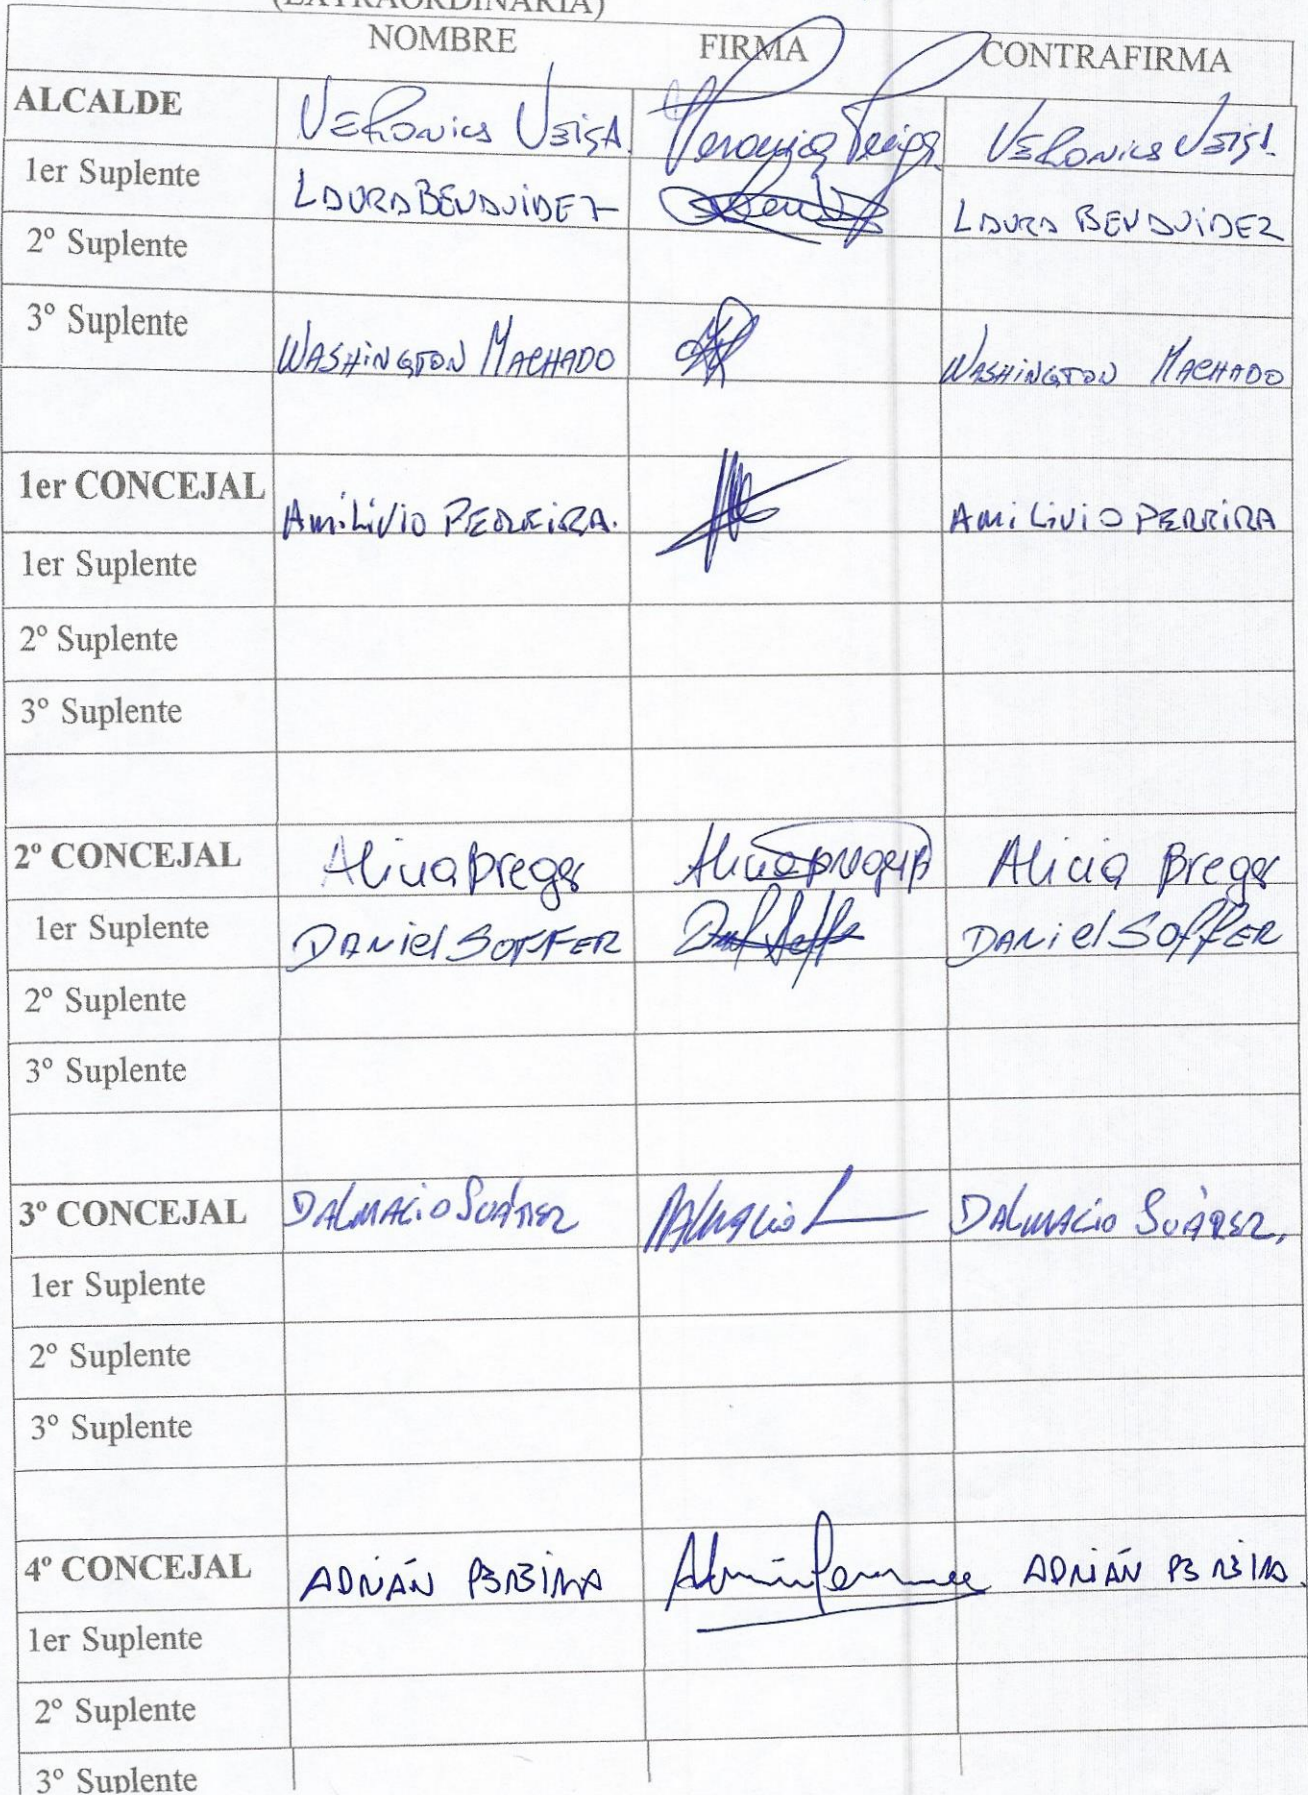 (EXTRAORDINARIA)
NOMBRE FIRMA CONTRAFIRMA
ALCALDE Veronica Veiga. Veronica Veiga Veronica Veiga.
1er Suplente LAURA BENAVIDEZ LAURA BENAVIDEZ
2º Suplente
3º Suplente WASHINGTON MACHADO WASHINGTON MACHADO
1er CONCEJAL AMILIVIO PEREIRA. AMILIVIO PERRIRA
1er Suplente
2º Suplente
3º Suplente
2º CONCEJAL Alicia Breger Alicia Breger
1er Suplente DANiel SOFFER DANiel SoffER
2º Suplente
3º Suplente
3º CONCEJAL DALMACIO SUÁREZ DALMACIO SUÁREZ.
1er Suplente
2º Suplente
3º Suplente
4º CONCEJAL ADRIÁN PEREIRA ADRIÁN PEREIRA.
1er Suplente
2º Suplente
3º Suplente